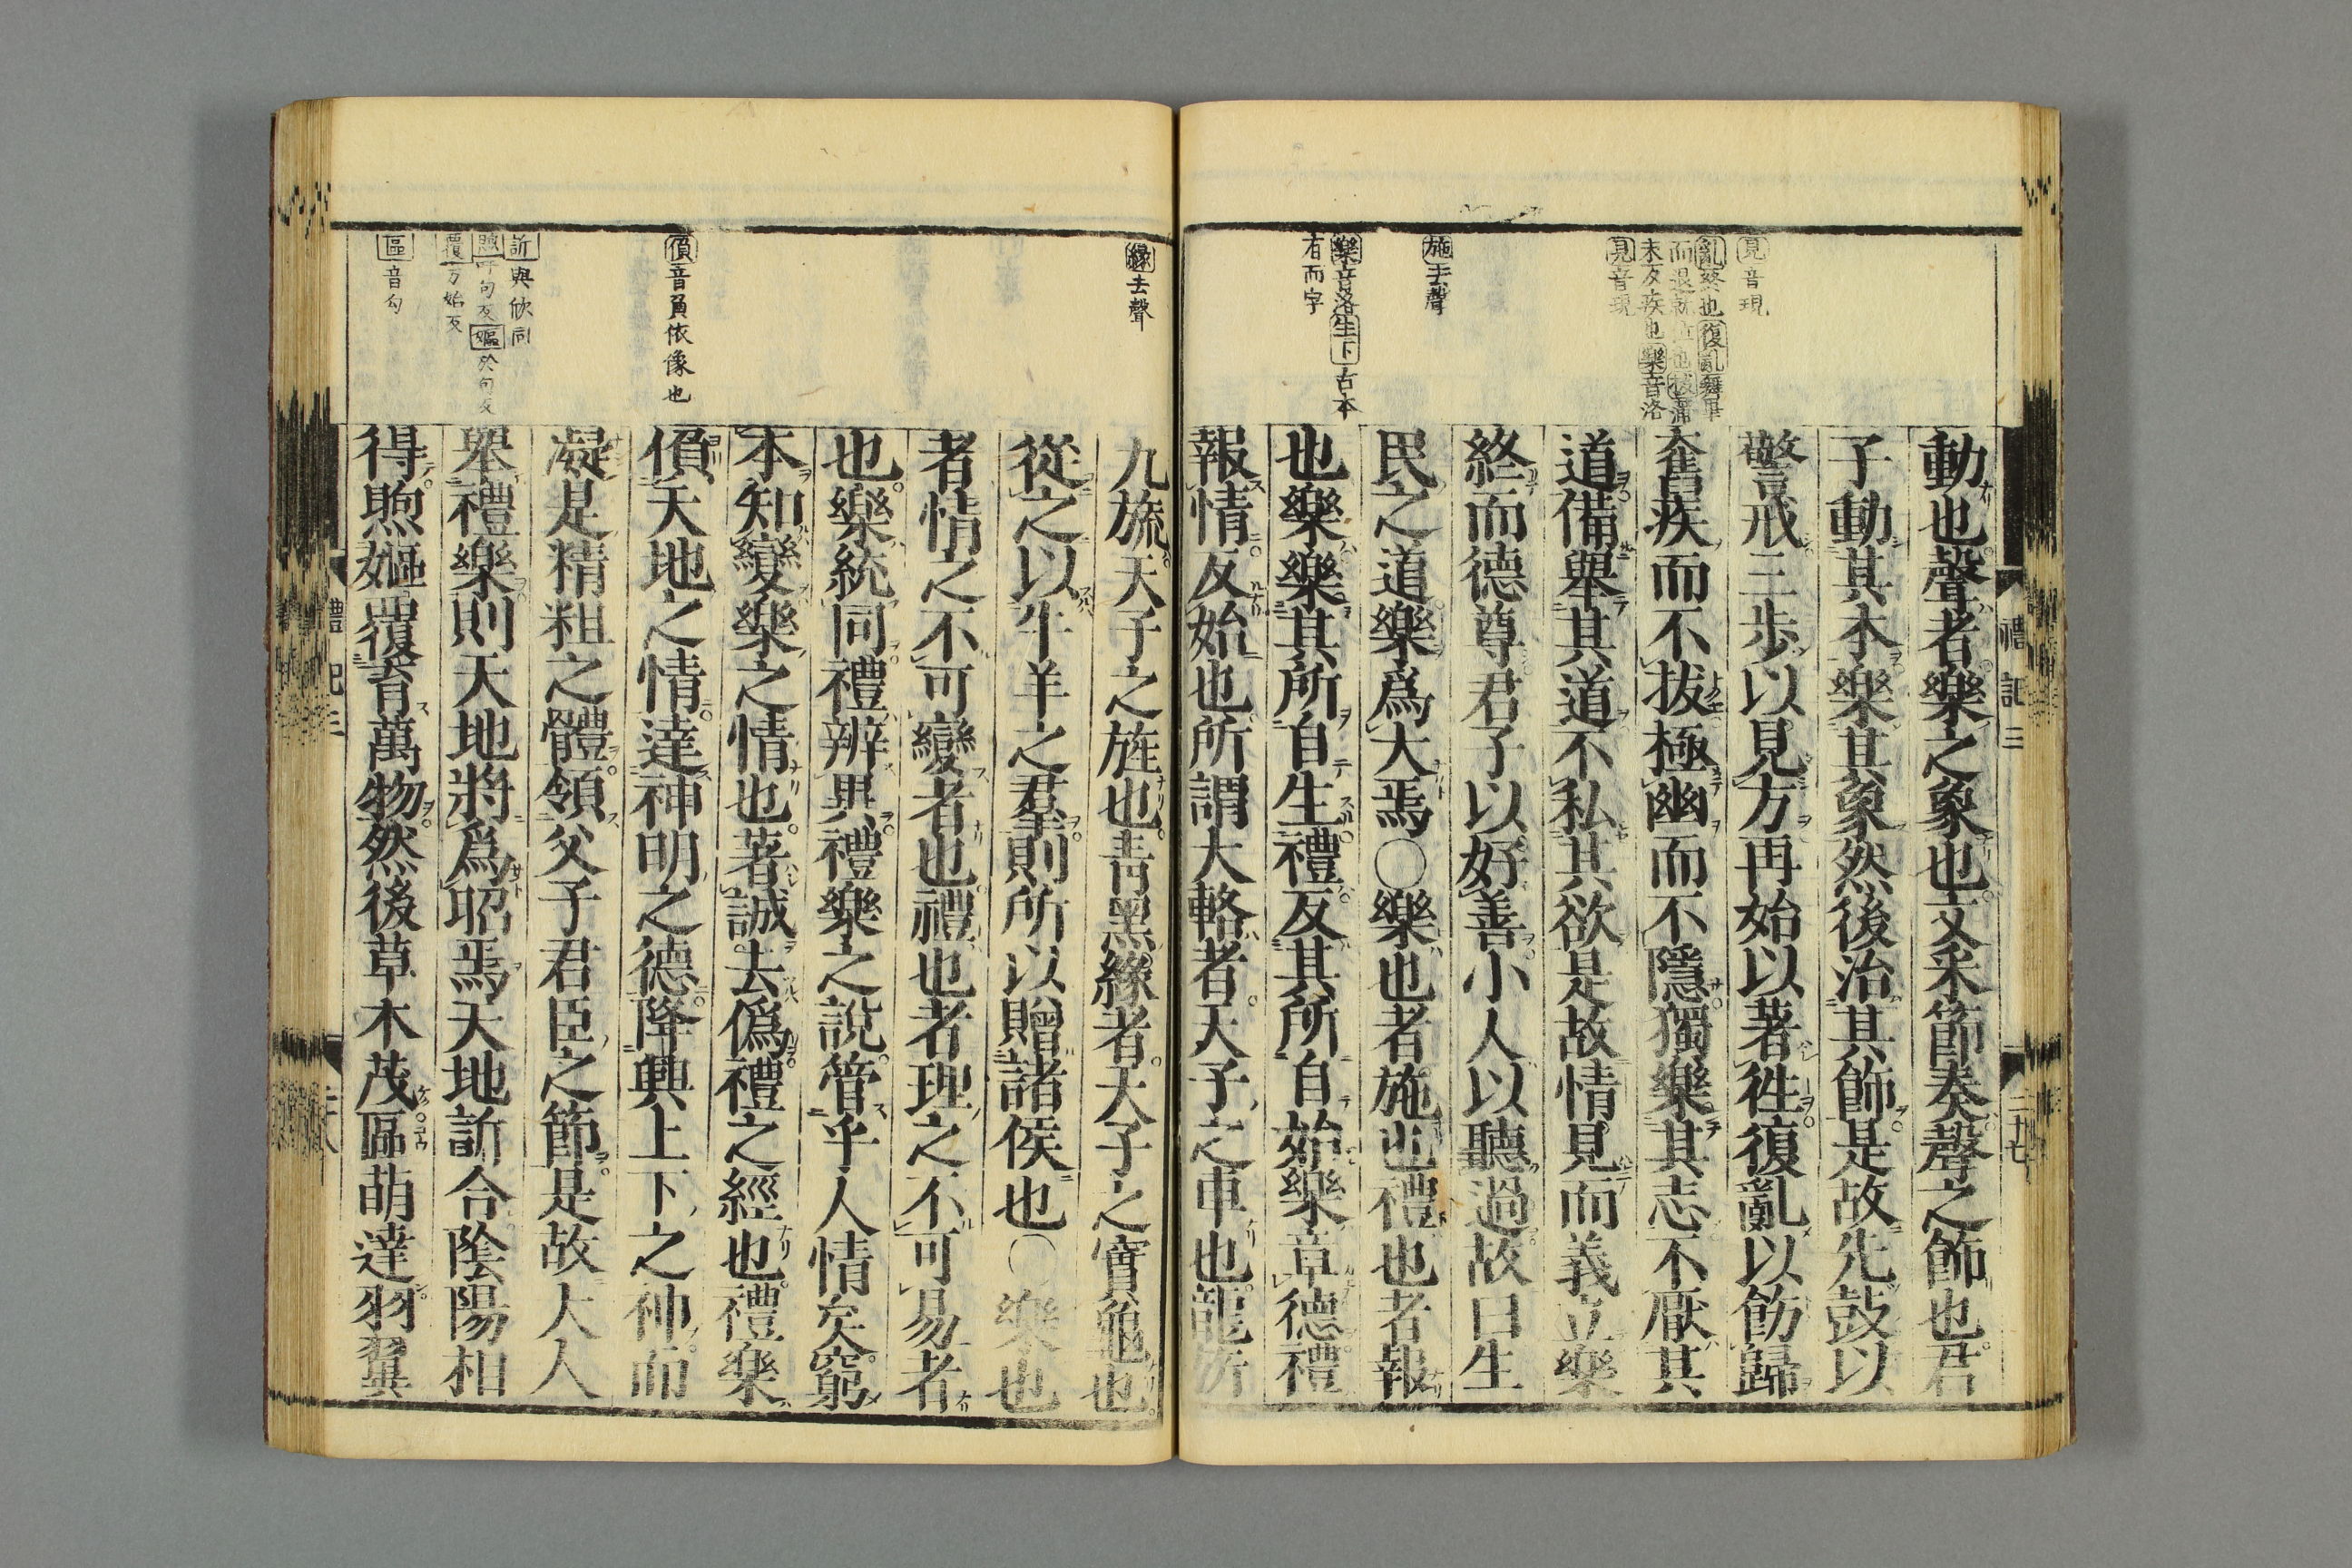 見音現
亂終也復亂舞畢
而退就位也拔蒲
末反疾也樂音洛
見音現
施去聲
樂音洛生下古本
有而字
動也聲者樂之象也文采節奏聲之飾也君
子動其本樂其象然後治其飾是故先鼓以
警戒三步以見方再始以著往復亂以飭歸
奮疾而不拔極幽而不隱獨樂其志不厭其
道備舉其道不私其欲是故情見而義立樂
終而德尊君子以好善小人以聽過故曰生
民之道樂爲大焉○樂也者施也禮也者報
也樂樂其所自生禮反其所自始樂章德禮
報情反始也所謂大輅者天子之車也龍旂
禮記三
二十七
緣去聲
偩音負依像也
訢與欣同
煦吁句反嫗於句反
覆方始反
區音勾
九旒天子之旌也靑黑緣者天子之寶龜也
從之以牛羊之羣則所以贈諸侯也○樂也
者情之不可變者也禮也者理之不可易者
也樂統同禮辨異禮樂之說管乎人情矣窮
本知變樂之情也著誠去僞禮之經也禮樂
偩天地之情達神明之德降興上下之神而
凝是精粗之體領父子君臣之節是故大人
舉禮樂則天地將爲昭焉天地訢合陰陽相
得煦嫗覆育萬物然後草木茂區萌達羽翼
禮記三
二十八